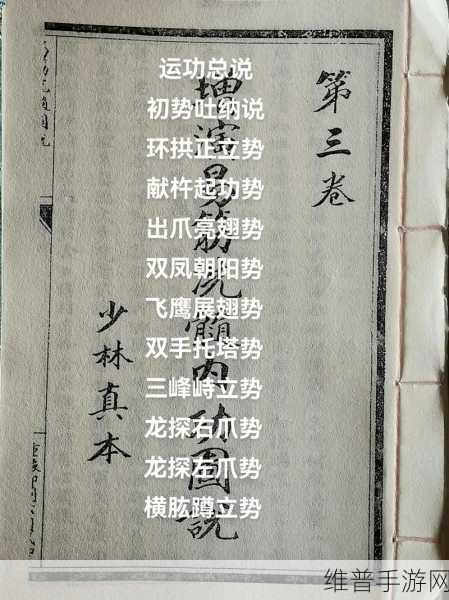 运功总说
初势吐纳说
环拱正立势
献杵起功势
出爪亮翅势
双凤朝阳势
飞鹰展翅势
双手托塔势
三峰峙立势
龙探右爪势
龙探左爪势
横肱蹲立势
第三卷
增演易筋洗髓内功圖說
少林真本
维普手游网